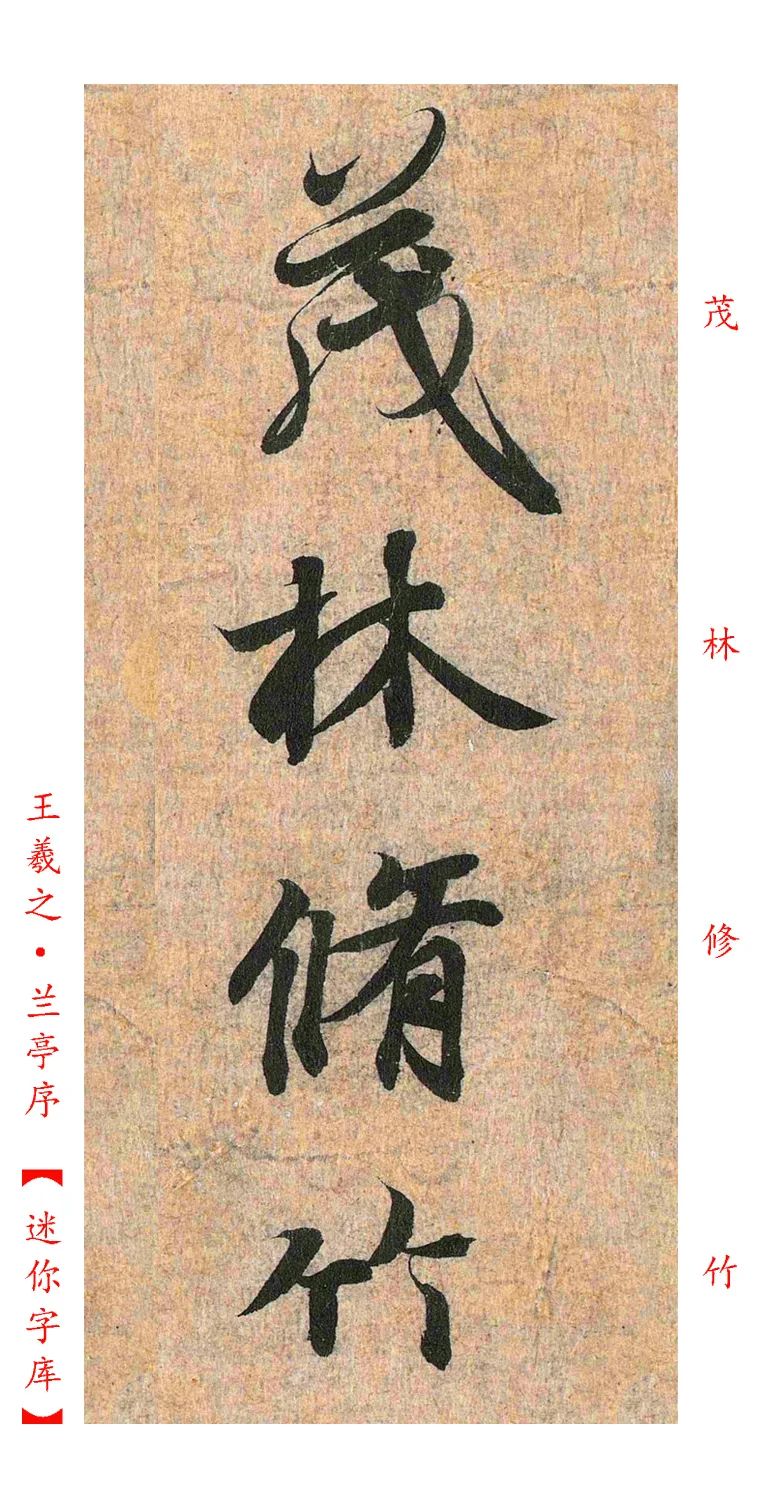 茂林脩竹
茂林修竹
王羲之·兰亭序【迷你字库】